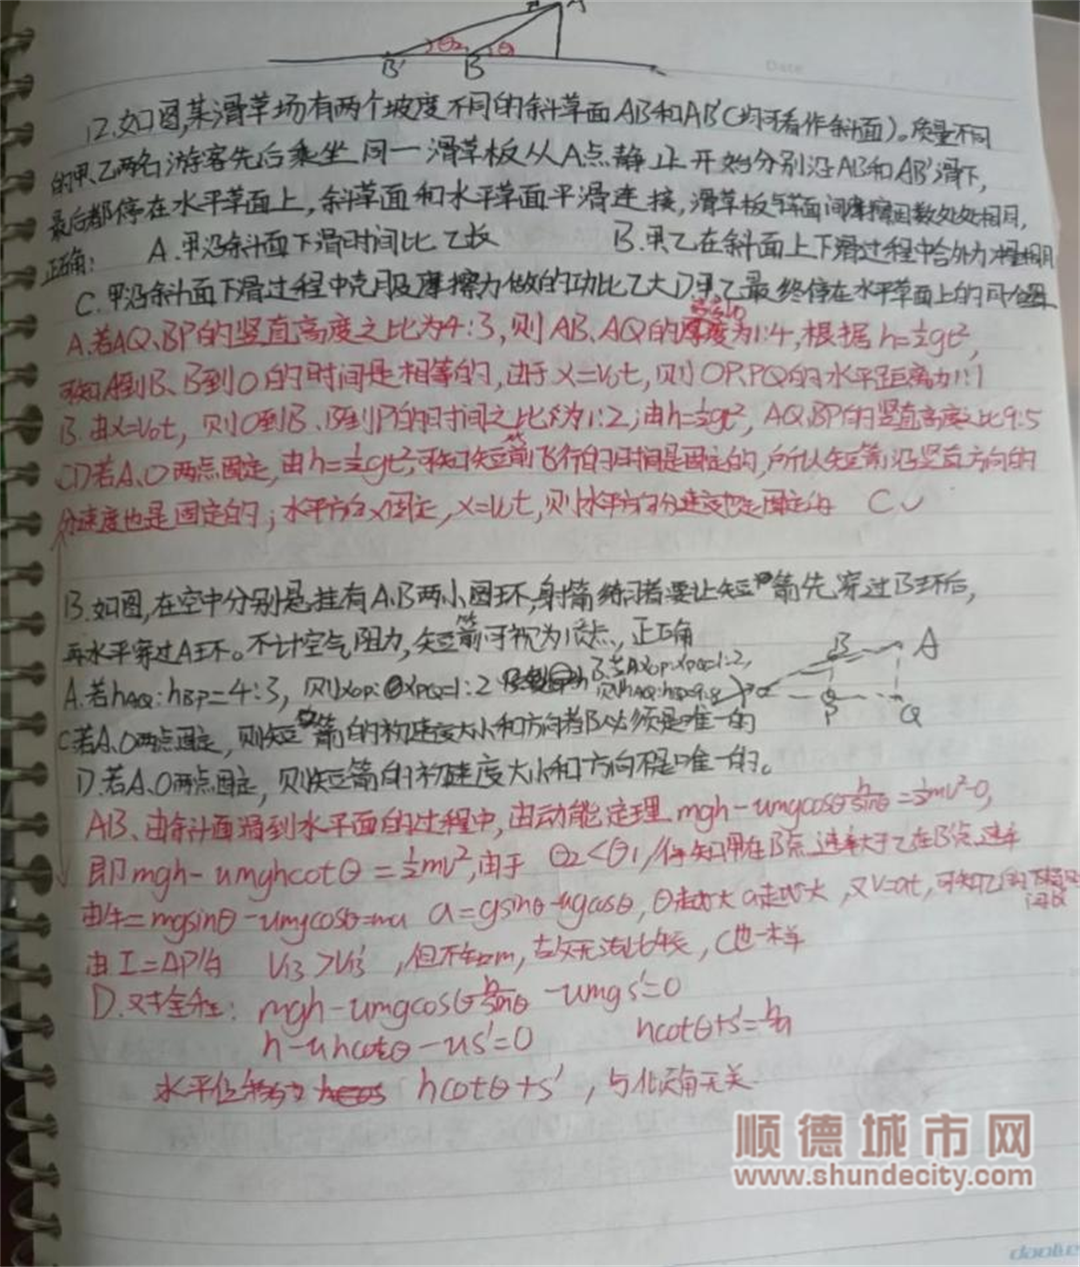 A
B' θ2 B θ1
Date
12.如图,某滑草场有两个坡度不同的斜草面AB和AB'(均可看作斜面)。质量不同
的甲、乙两名游客先后乘坐同一滑草板从A点静止开始分别沿AB和AB'滑下,
最后都停在水平草面上,斜草面和水平草面平滑连接,滑草板与草面间摩擦因数处处相同,
正确: A.甲沿斜面下滑时间比乙长 B.甲乙在斜面上下滑过程中合外力冲量相同
C.甲沿斜面下滑过程中克服摩擦力做的功比乙大 D.甲乙最终停在水平草面上的同一位置
A.若AQ、BP的竖直高度之比为4:3,则AB、AQ的高度为1:4,根据h=½gt²,
可知A到B、B到O的时间是相等的,由于x=v₀t,则OP、PQ的水平距离为1:1
B.由x=v₀t,则O到B、B到P的时间之比为1:2;由h=½gt²,AQ、BP的竖直高度之比9:5
CD若A、O两点固定,由h=½gt²,可知短箭飞行的时间是固定的,所以短箭沿竖直方向的
分速度也是固定的;水平方向x固定,x=v₀t,则水平方向分速度也是固定的 C✓
13.如图,在空中分别悬挂有A、B两小圆环,射箭练习者要让短箭先穿过B环后,
再水平穿过A环。不计空气阻力,短箭可视为质点,正确
A.若hAQ:hBP=4:3,则xOP:xPQ=1:2 B.若xOP:xPQ=1:2,
则hAQ:hBP=9:8
B A
P Q
C若A、O两点固定,则短箭的初速度大小和方向都必须是唯一的
D.若A、O两点固定,则短箭的初速度大小和方向不是唯一的。
AB、由斜面滑到水平面的过程中,由动能定理 mgh-umgcosθ h/sinθ=½mv²-0,
即mgh-umghcotθ=½mv²,由于 θ2<θ1,得知甲在B点速率大于乙在B'点速率
由F=mgsinθ-umgcosθ=ma a=gsinθ-ugcosθ,θ越大a越大,又v=at,可知乙的
由I=ΔP知 VB>VB',但不知m,故无法比较,C也一样
D.对全程: mgh-umgcosθ h/sinθ-umgs'=0
h-uhcotθ-us'=0 hcotθ+s'=h/u
水平位移为 hcotθ+s',与倾角无关
顺德城市网
www.shundecity.com